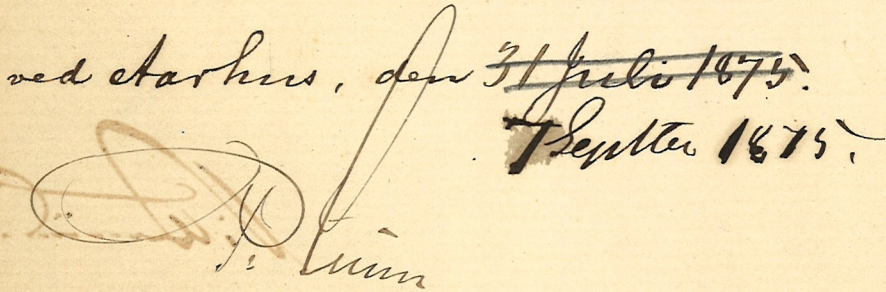 ved Aarhus, den 31 Juli 1875.
7 Septber 1875.
P.